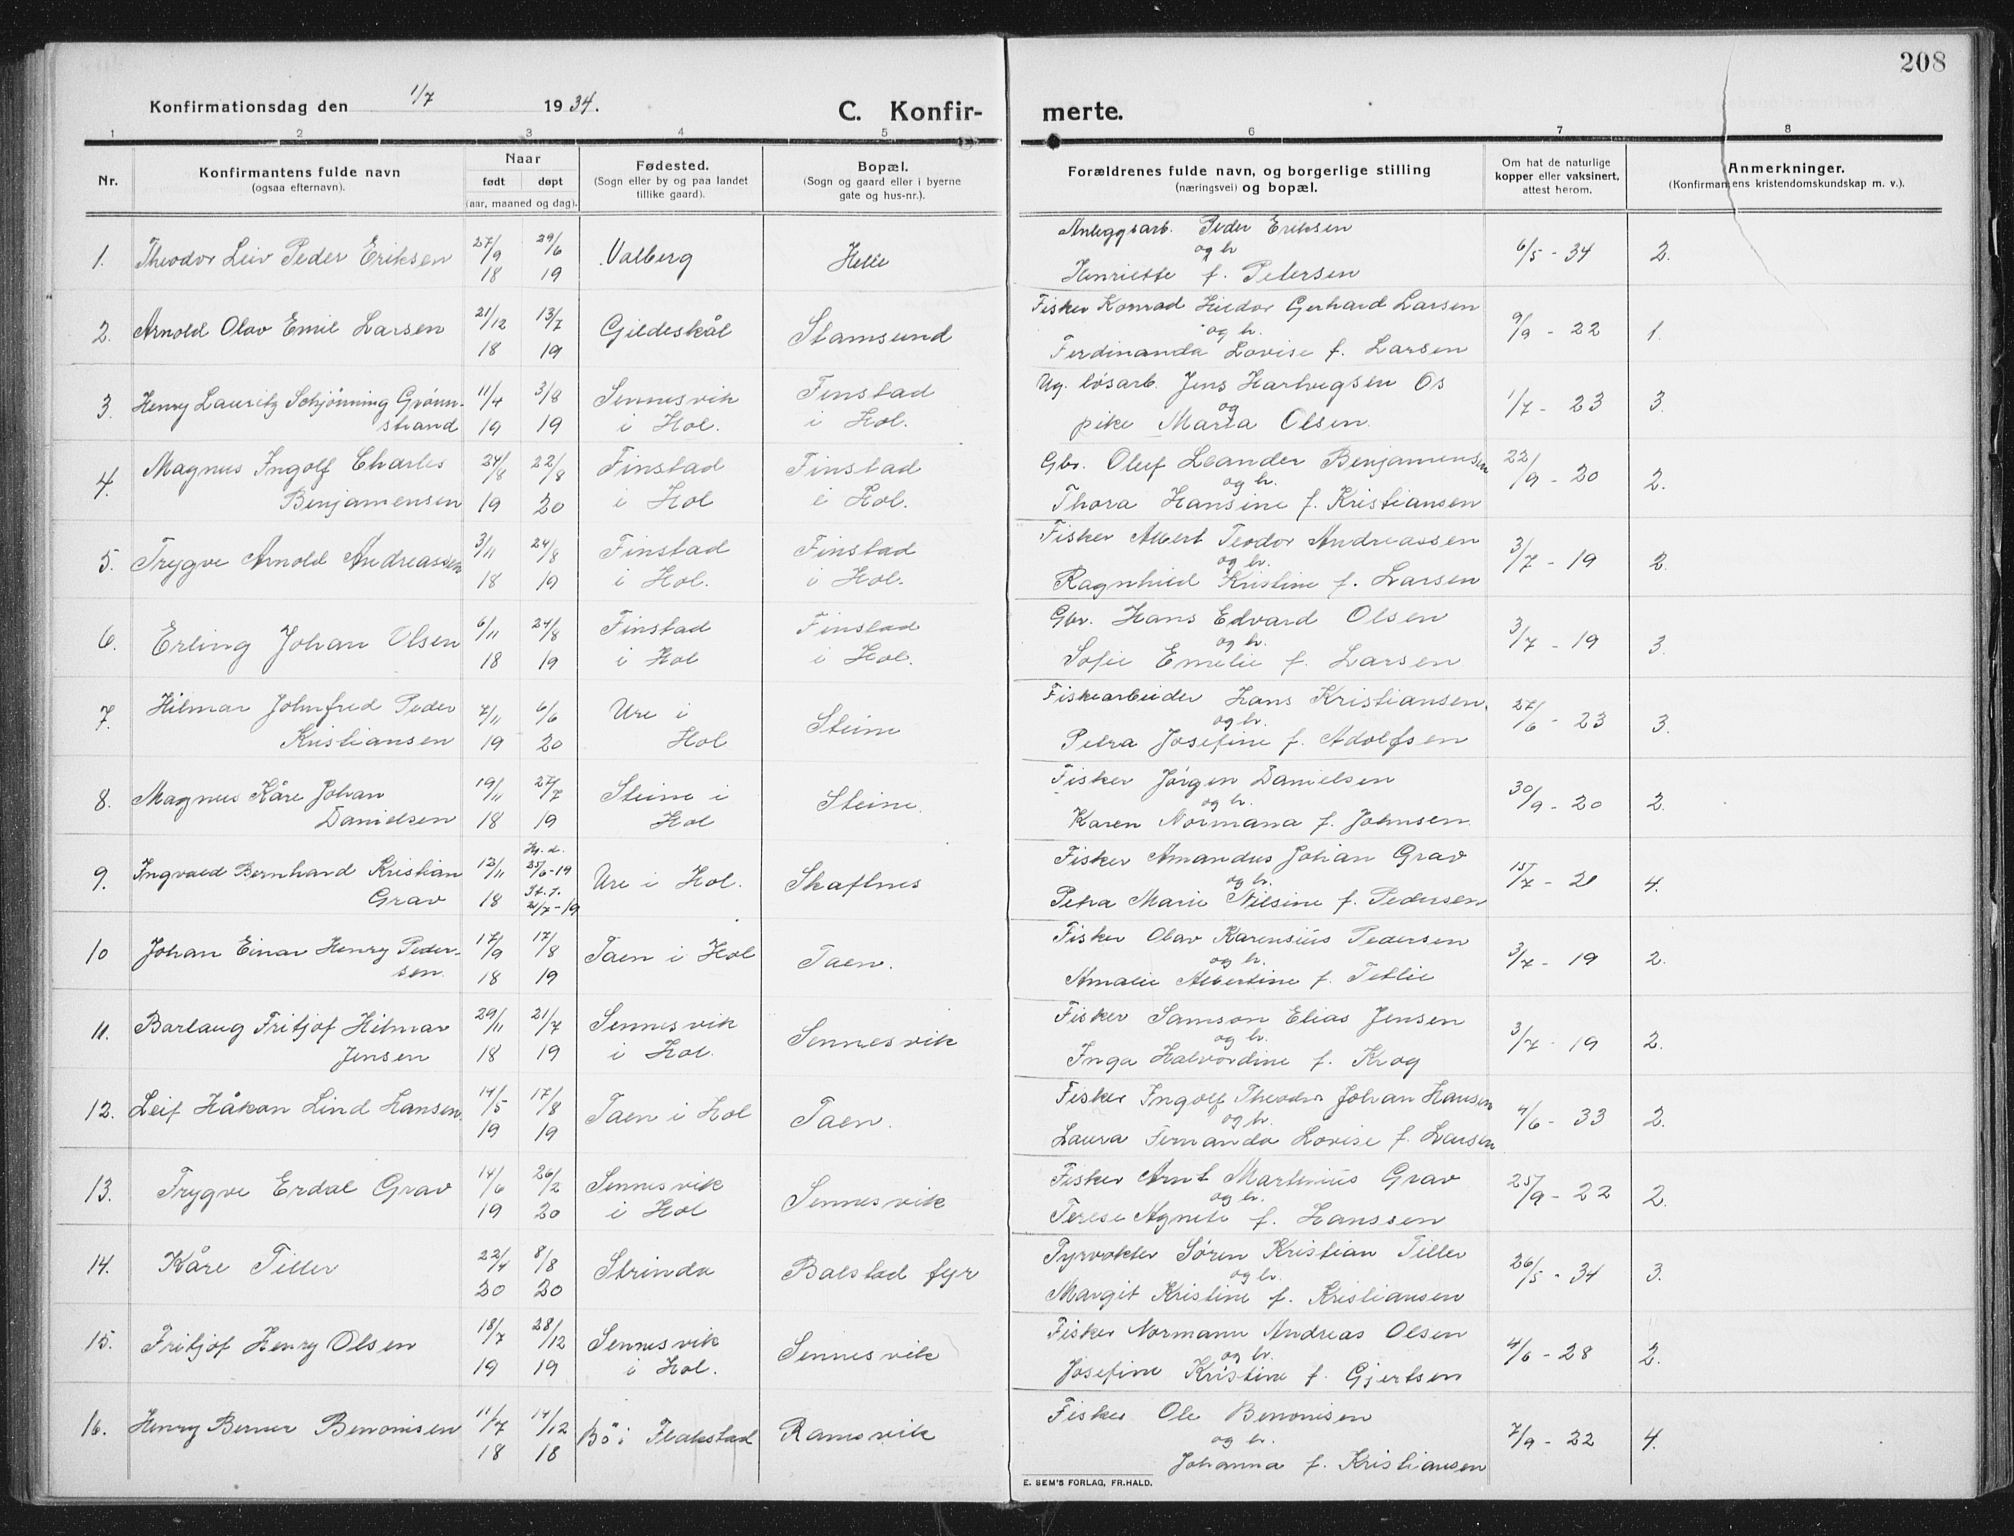 208
Konfirmationsdag den 1/7 1934.
C. Konfir-
merte.
1 2 3 4 5 6 7 8
Nr.
Konfirmantens fulde navn
(ogsaa efternavn).
Naar
født døpt
(aar, maaned og dag).
Fødested.
(Sogn eller by og paa landet
tillike gaard).
Bopæl.
(Sogn og gaard eller i byerne
gate og hus-nr.).
Forældrenes fulde navn, og borgerlige stilling
(næringsvei) og bopæl.
Om hat de naturlige
kopper eller vaksinert,
attest herom.
Anmerkninger.
(Konfirmantens kristendomskundskap m. v.).
1. Theodor Leiv Peder Eriksen 27/9 18 29/6 19 Valberg Helle
Anleggsarb. Peder Eriksen
og h
Henriette f. Petersen
6/5 - 34 2.
2. Arnold Olav Emil Larsen 21/12 18 13/7 19 Gildeskål Stamsund
Fisker Konrad Hildor Gerhard Larsen
og h.
Ferdinanda Lovise f. Larsen
9/9 - 22 1.
3. Henry Lauritz Schjönning Grönn-
strand 11/4 19 3/8 19 Sennesvik
i Hol. Finstad
i Hol.
Ug. løsarb. Jens Hartvigsen Os
og
pike Maria Olsen.
1/7 - 23 3.
4. Magnus Ingolf Charles
Benjamensen 24/8 19 22/8 20 Finstad
i Hol Finstad
i Hol.
Gbr. Oluf Leander Benjamensen
og h.
Thora Hansine f. Kristiansen
22/9 - 20 2.
5. Trygve Arnold Andreassen 3/11 18 24/8 19 Finstad
i Hol. Finstad
i Hol.
Fisker Albert Teodor Andreassen
og h.
Ragnhild Kristine f. Larsen
3/7 - 19 2.
6. Erling Johan Olsen 6/11 18 24/8 19 Finstad
i Hol Finstad
i Hol.
Gbr. Hans Edvard Olsen
og h.
Sofie Emelie f. Larsen
3/7 - 19 3.
7. Hilmar Johnfred Peder
Kristiansen 7/11 19 6/6 20 Ure i
Hol Steine
Fiskearbeider Hans Kristiansen.
og h.
Petra Josefine f. Adolfsen
27/6 - 23 3.
8. Magnus Kåre Johan
Danielsen 19/11 18 27/7 19 Steine i
Hol Steine.
Fisker Jörgen Danielsen
og h.
Karen Normana f. Johnsen.
30/9 - 20 2.
9. Ingvald Bernhard Kristian
Grav 12/11 18 Hj. d.
25/6-19
St. f.
21/7-19 Ure i Hol. Skaftnes
Fisker Amandus Johan Grav
og h.
Petra Marie Nilsine f. Pedersen
15/7 - 21 4.
10 Johan Einar Henry Peder-
sen. 17/9 18 17/8 19 Taen i Hol Taen.
Fisker Olav Karensius Pedersen
og h.
Amalie Albertine f. Tetlie
3/7 - 19 2.
11. Barlaug Fritjof Hilmar
Jensen 29/11 18 21/7 19 Sennesvik
i Hol. Sennesvik
Fisker Samson Elias Jensen
og h.
Inga Halvordine f. Krog
3/7 - 19 2.
12. Leif Håkon Lind Hansen. 14/5 19 17/8 19 Taen i Hol Taen.
Fisker Ingolf Theodor Johan Hansen
og h.
Laura Fernanda Lovise f. Larsen
4/6 - 33 2.
13. Trygve Erdal Grav 14/6 19 26/2 20 Sennesvik
i Hol Sennesvik
Fisker Arnt Martinius Grav
og h.
Terese Agnete f. Hanssen
25/9 - 22 2.
14. Kåre Tiller 22/4 20 8/8 20 Strinda Balstad fyr
Fyrvokter Sören Kristian Tiller
og h.
Margit Kristine f. Kristiansen
26/5 - 34 3.
15. Fritjof Henry Olsen 18/7 19 28/12 19 Sennesvik
i Hol. Sennesvik
Fisker Normann Andreas Olsen
og h.
Josefine Kristine f. Gjertsen
4/6 - 28 2.
16. Henry Berner Benonisen 11/7 18 14/12 18 Bö i Flakstad Ramsvik
Fisker Ole Benonisen
og h.
Johanna f. Kristiansen
7/9 - 22 4.
E. SEM'S FORLAG, FR.HALD.